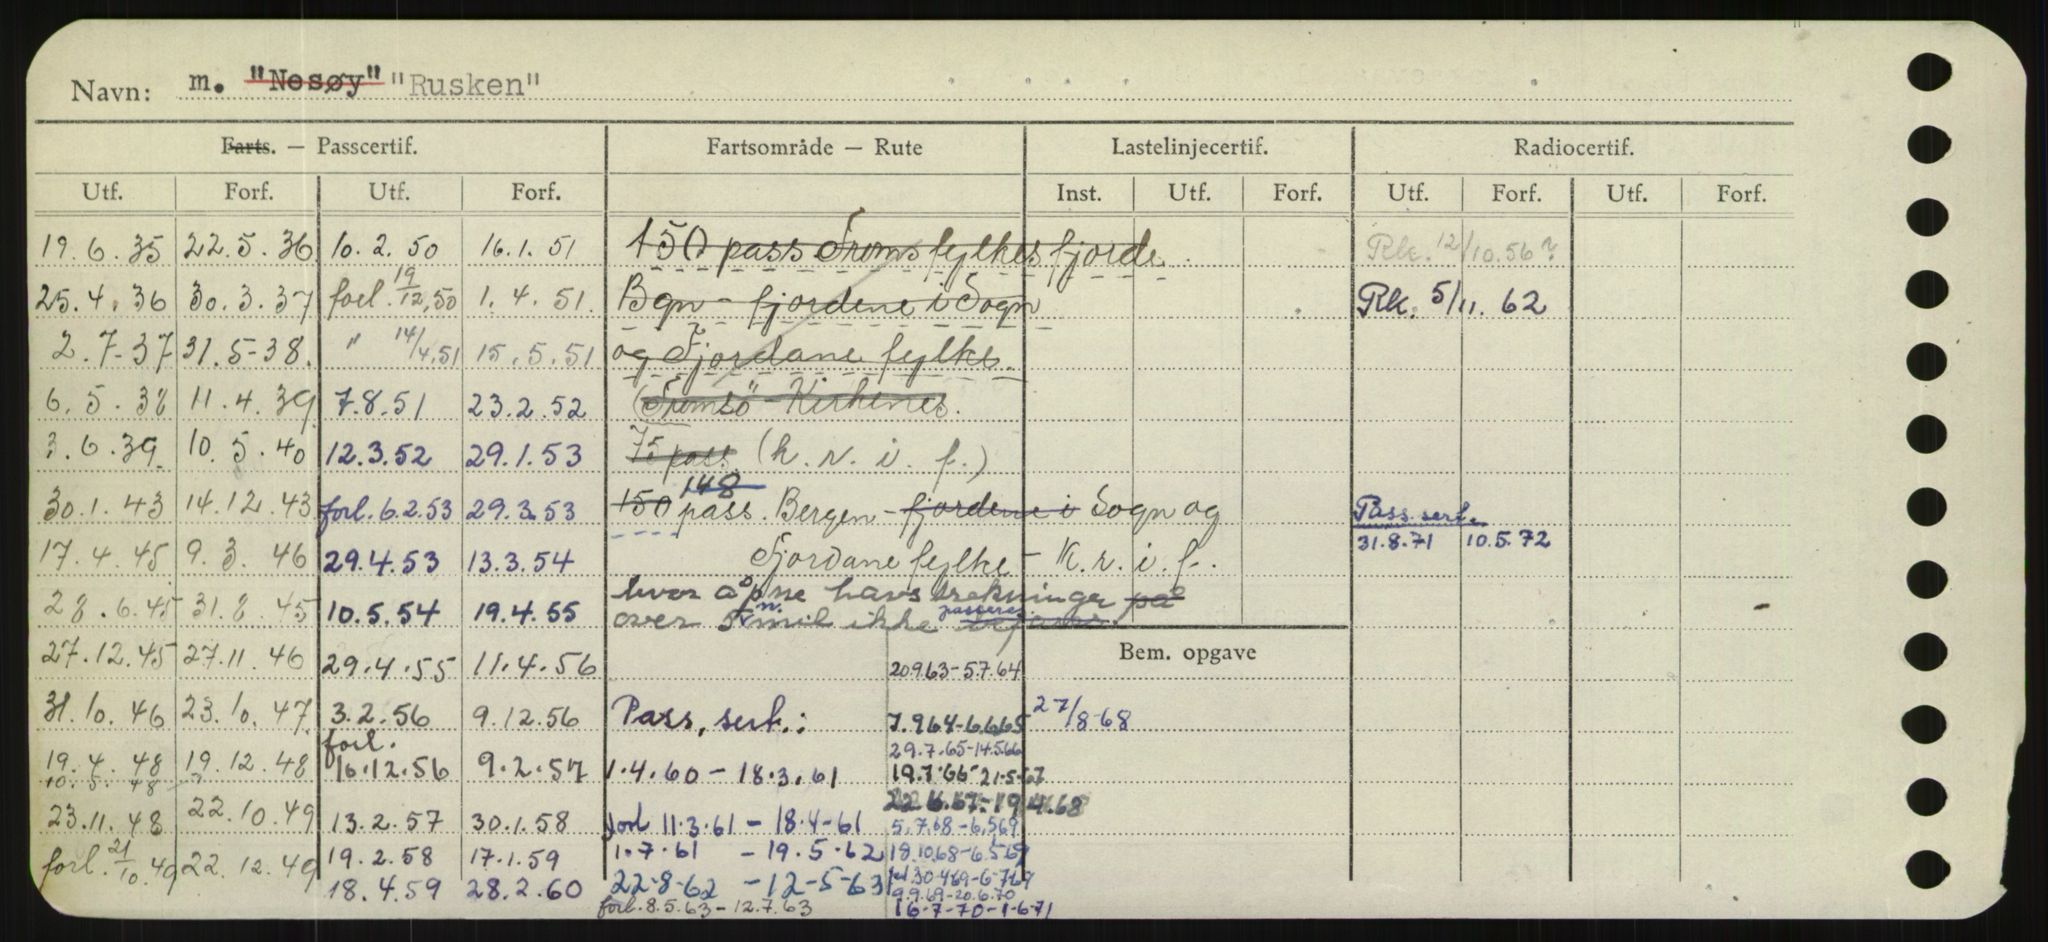 Navn: m. "Nesøy" "Rusken"
Farts. — Passcertif. Fartsområde — Rute Lastelinjecertif. Radiocertif.
Utf. Forf. Utf. Forf. Inst. Utf. Forf. Utf. Forf. Utf. Forf.
19.6.35 22.5.36 10.2.50 16.1.51 150 pass Troms fylkes fjorde Rk. 12/10.56?
25.4.36 30.3.37 forl. 19/12.50 1.4.51. Bgn - fjordene i Sogn Rk. 5/11.62
2.7-37 31.5-38. " 14/4.51 15.5.51 og Fjordane fylke.
6.5.38 11.4.39 7.8.51 23.2.52 (Tromsö - Kirkenes.
3.6.39. 10.5.40 12.3.52 29.1.53 75 pass (k.r.i.f.)
148
30.1.43 14.12.43 forl.6.2.53 29.3.53 150 pass. Bergen - fjordene i Sogn og Pass. sert.
17.4.45 9.3.46 29.4.53 13.3.54 Fjordane fylke - K.r.i.f. 31.8.71 10.5.72
hvor åpne havstrekninger på
28.6.45 31.8.45 10.5.54 19.4.55 over 5 n.mil ikke passeres.
27.12.45 27.11.46 29.4.55 11.4.56 20.9.63-5.7.64 Bem. opgave
31.10.46 23.10.47. 3.2.56 9.12.56 Pass. sert.: 7.9.64-6.6.65 27/8-68
forl. 29.7.65-14.5.66
19.4.48 19.12.48 16.12.56 9.2.57 1.4.60 - 18.3.61 19.7.66-21.5.67
10.5.48 22.6.67-19.4.68
23.11.48 22.10.49 13.2.57 30.1.58 forl 11.3.61 - 18.4-61 5.7.68-6.5.69
forl. 21/10.49 22.12.49 19.2.58 17.1.59 1.7.61 - 19.5.62 18.10.68-6.5.69
18.4.59 28.2.60 22-8-62 - 12-5-63 forl 30.4.69-6.7.69
9.9.69-20.6.70
forl. 8.5.63-12.7.63 16-7-70-1-6-71